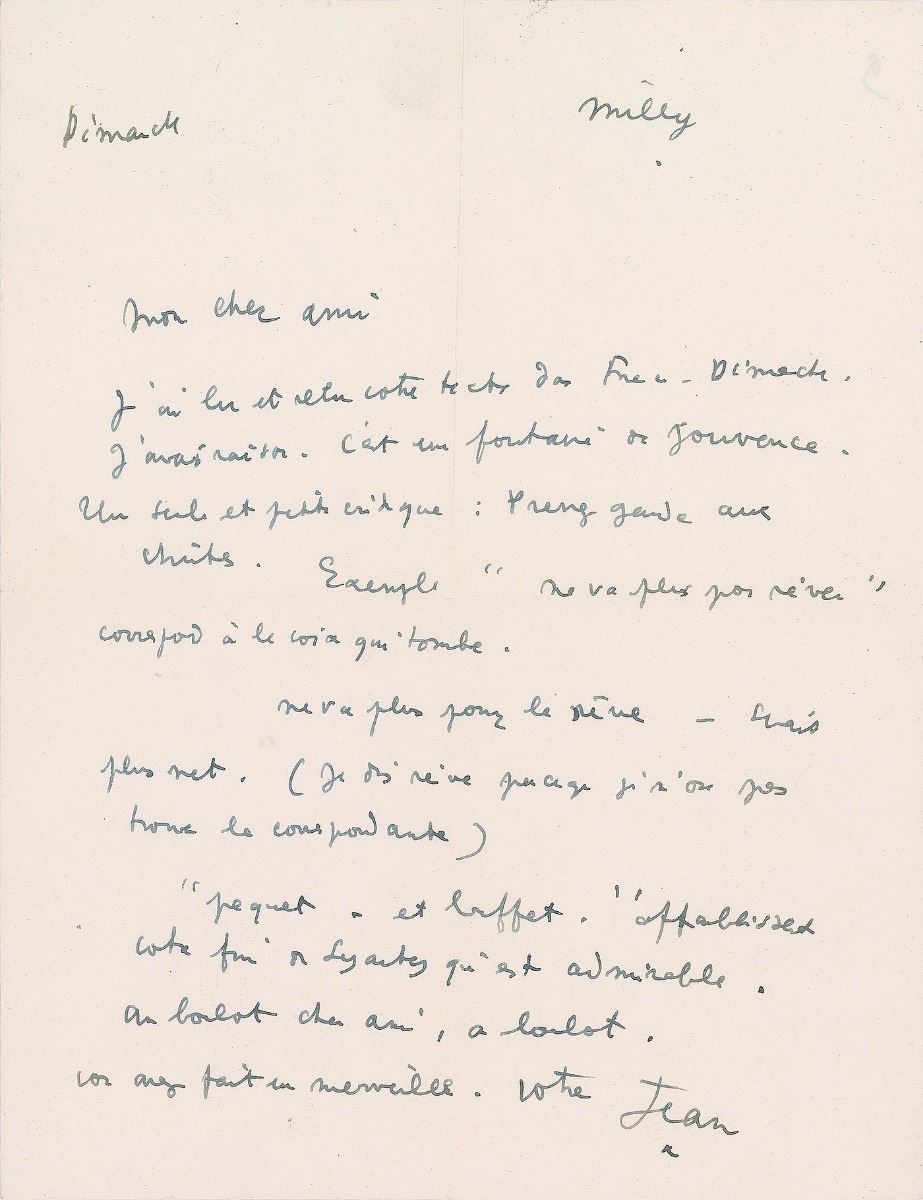 Dimanche
Milly
mon cher ami
J'ai lu et relu votre texte dans France-Dimanche.
J'avais raison. C'est une fontaine de jouvence.
Une seule et petite critique : Prenez garde aux
chutes.
Exemple " ne va plus pas rêver "
correspond à la voix qui tombe.
ne va plus pour le rêve — serait
plus net. (Je dis rêve parce que je n'ose pas
trouver la correspondante)
" paquet - et buffet. " affaiblissent
votre fin de qui est admirable.
au boulot cher ami, au boulot.
vous avez fait une merveille. votre Jean